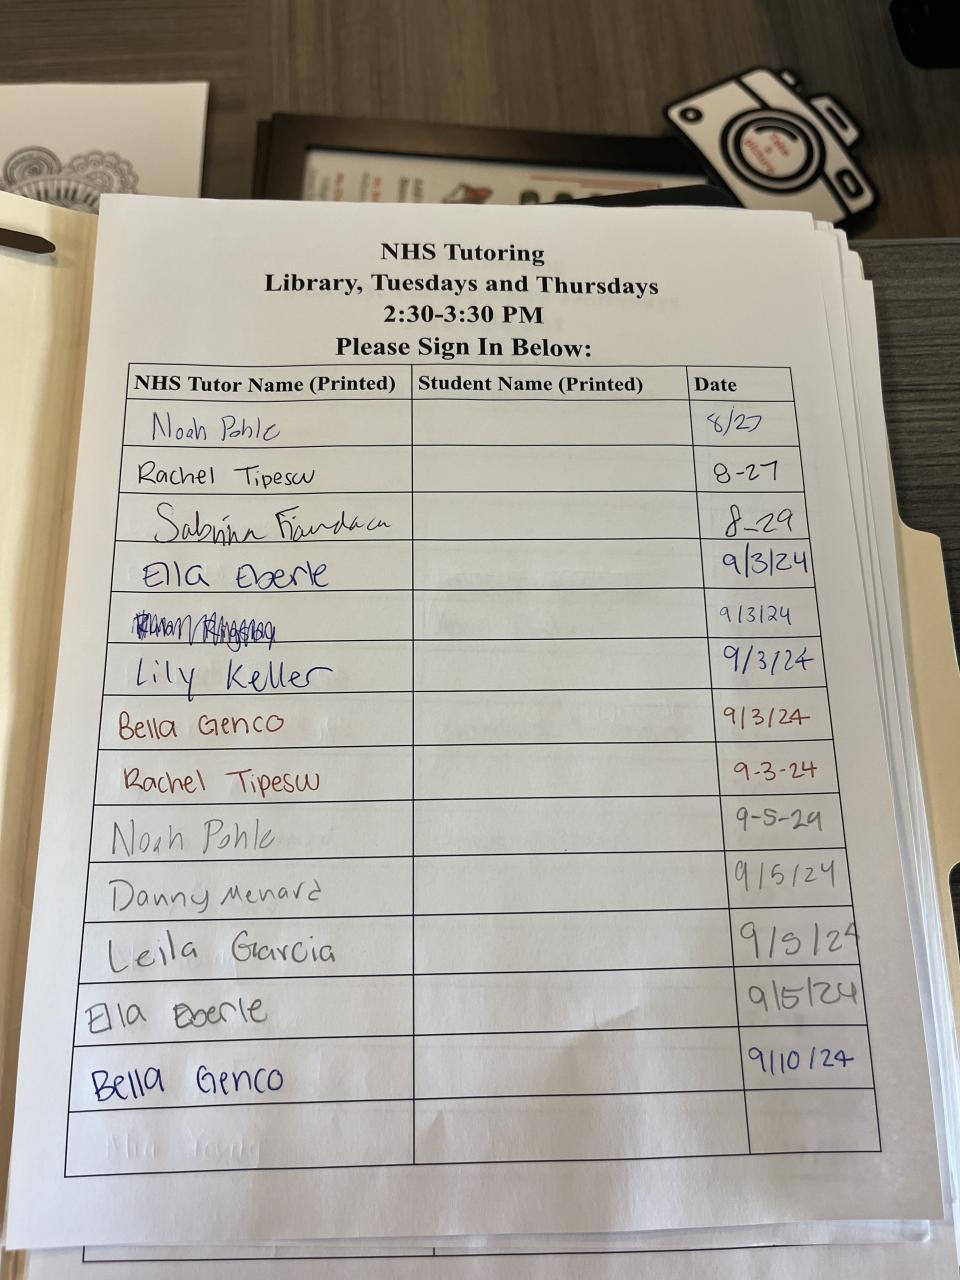 Take
a
picture
NHS Tutoring
Library, Tuesdays and Thursdays
2:30-3:30 PM
Please Sign In Below:
NHS Tutor Name (Printed) Student Name (Printed) Date
Noah Pohlc 8/27
Rachel Tipescu 8-27
Sabrina Fiandaca 8-29
Ella Eberle 9/3/24
9/3/24
Lily Keller 9/3/24
Bella Genco 9/3/24
Rachel Tipescu 9-3-24
Noah Pohlc 9-5-24
Danny Menard 9/5/24
Leila Garcia 9/5/24
Ella Eberle 9/5/24
Bella Genco 9/10/24